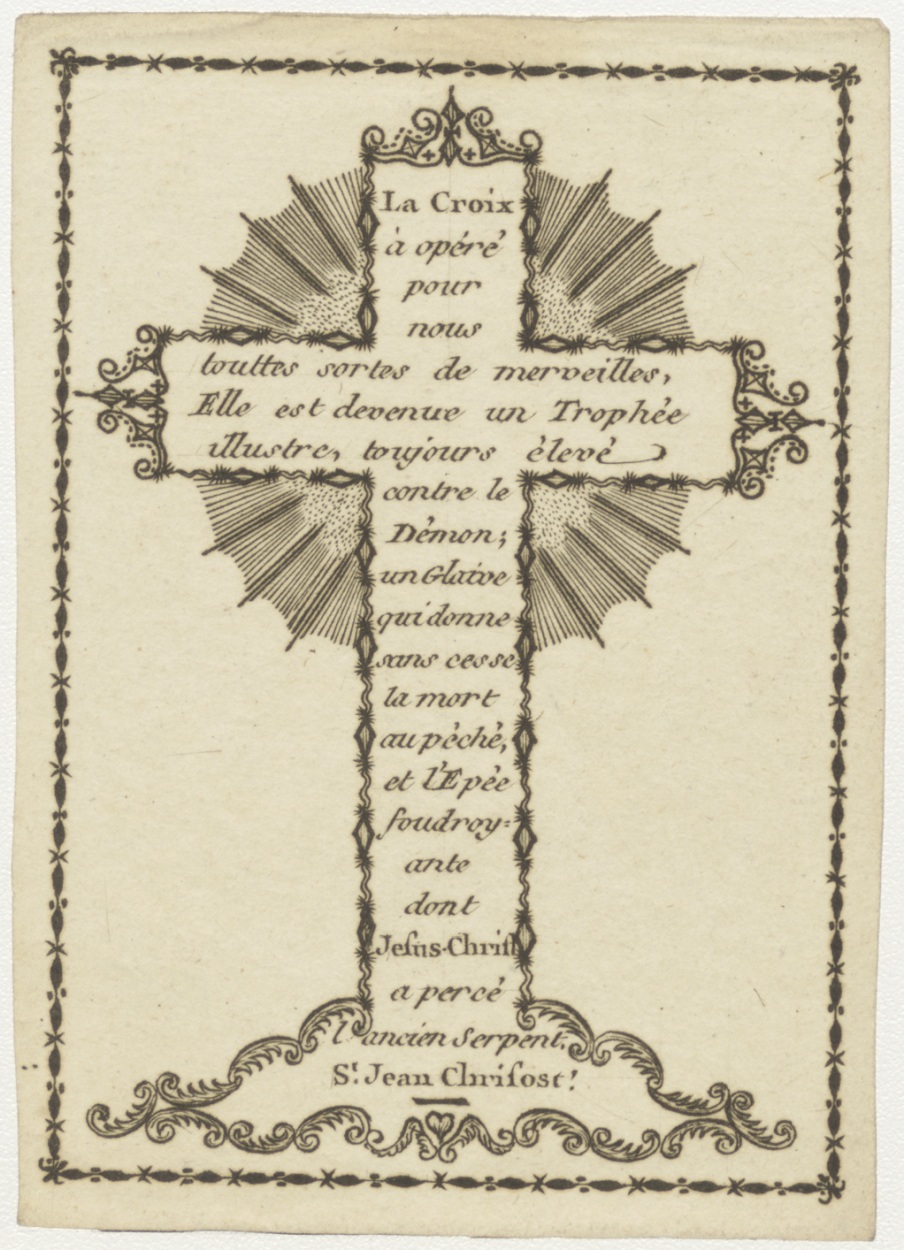 La Croix
à opéré
pour
nous
touttes sortes de merveilles,
Elle est devenue un Trophée
illustre, toujours élevé
contre le
Démon;
un Glaive
qui donne
sans cesse
la mort
au péché,
et l'Epée
foudroy=
ante
dont
Jeſus-Chriſt
a percé
l'ancien Serpent.
S.t Jean Chriſost.!